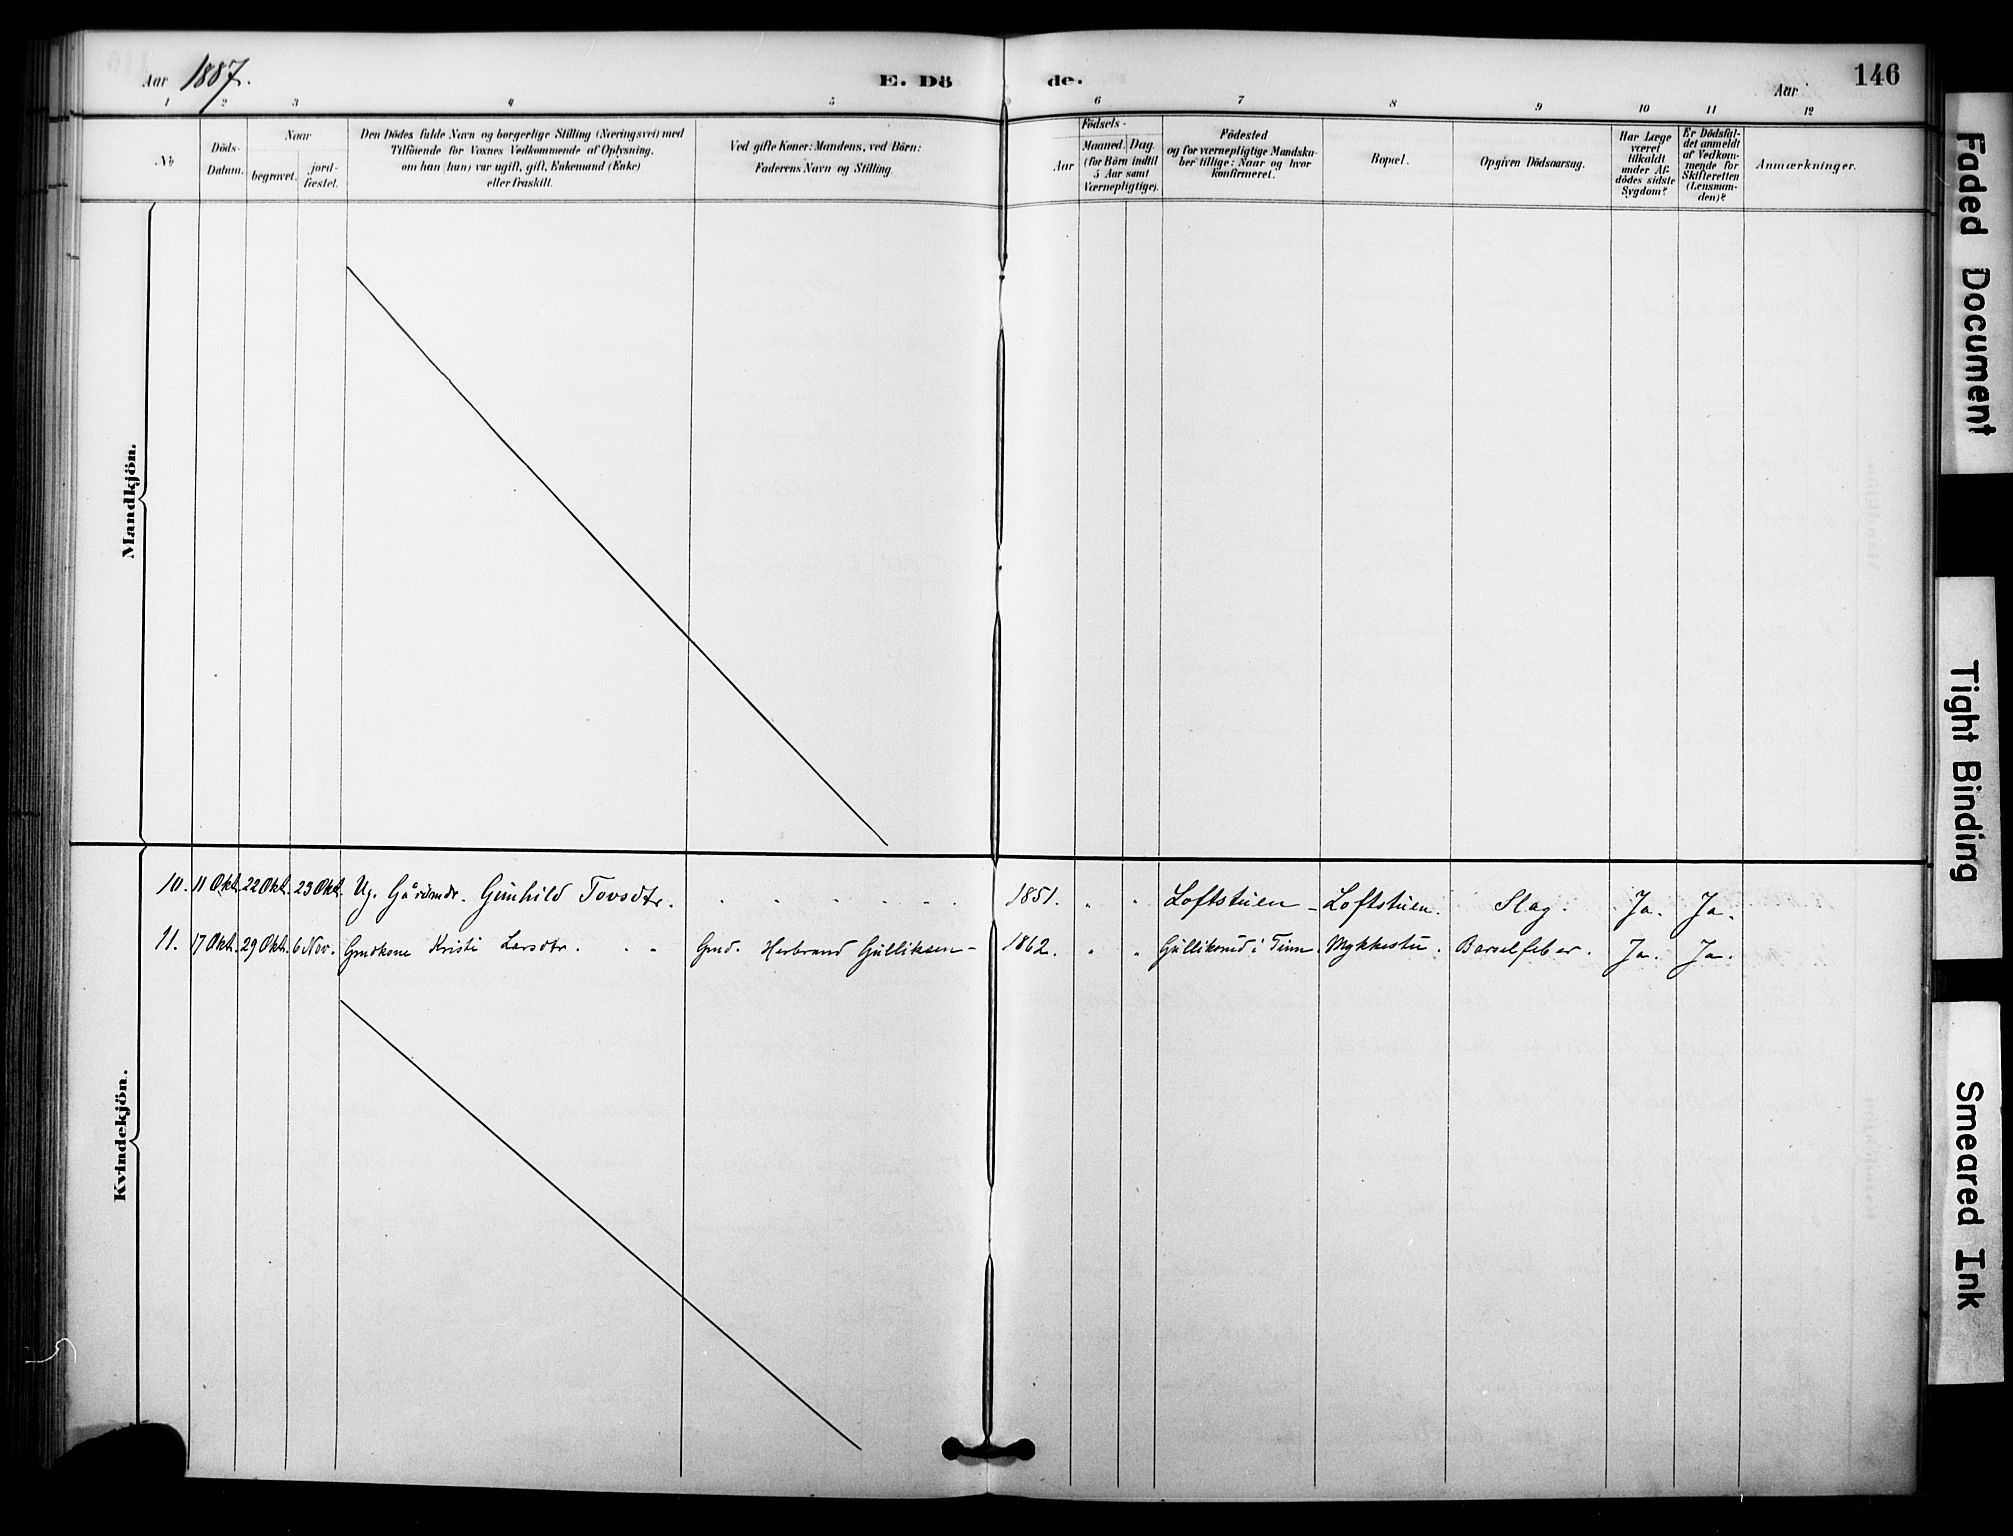 Aar 1887.
E. Dö
de.
Aar
146
1 2 3 4 5
6 7 8 9 10 11 12
№
Döds-
Datum.
Naar
begravet.
jord-
fæstet.
Den Dödes fulde Navn og borgerlige Stilling (Næringsvei) med
Tilföiende for Voxnes Vedkommende af Oplysning,
om han (hun) var ugift, gift, Enkemand (Enke)
eller fraskilt.
Ved gifte Koner: Mandens, ved Börn:
Faderens Navn og Stilling.
Födsels-
Aar
Maaned.
Dag
(for Börn indtil
5 Aar samt
Værnepligtige).
Födested
og for værnepligtige Mandska-
ber tillige: Naar og hvor
konfirmeret.
Bopæl.
Opgiven Dödsaarsag.
Har Læge
været
tilkaldt
under Af-
dödes sidste
Sygdom?
Er Dödsfal-
det anmeldt
af Vedkom-
mende for
Skifteretten
(Lensman-
den)?
Anmærkninger.
Mandkjön.
10. 11 Okt. 22 Okt. 23 Okt. Ug. Gårdmdr. Gunhild Tovsdtr. 1851. " " Loftstuen - Loftstuen. Slag. Ja. Ja.
11. 17 Okt. 29 Okt. 6 Nov. Gmdkone Kristi Larsdtr. " " Gmd. Herbrand Gulliksen - 1862. " " Gulliksrud i Tinn. Mykkestu. Barselfeber. Ja. Ja.
Kvindekjön.
Faded Document
Tight Binding
Smeared Ink